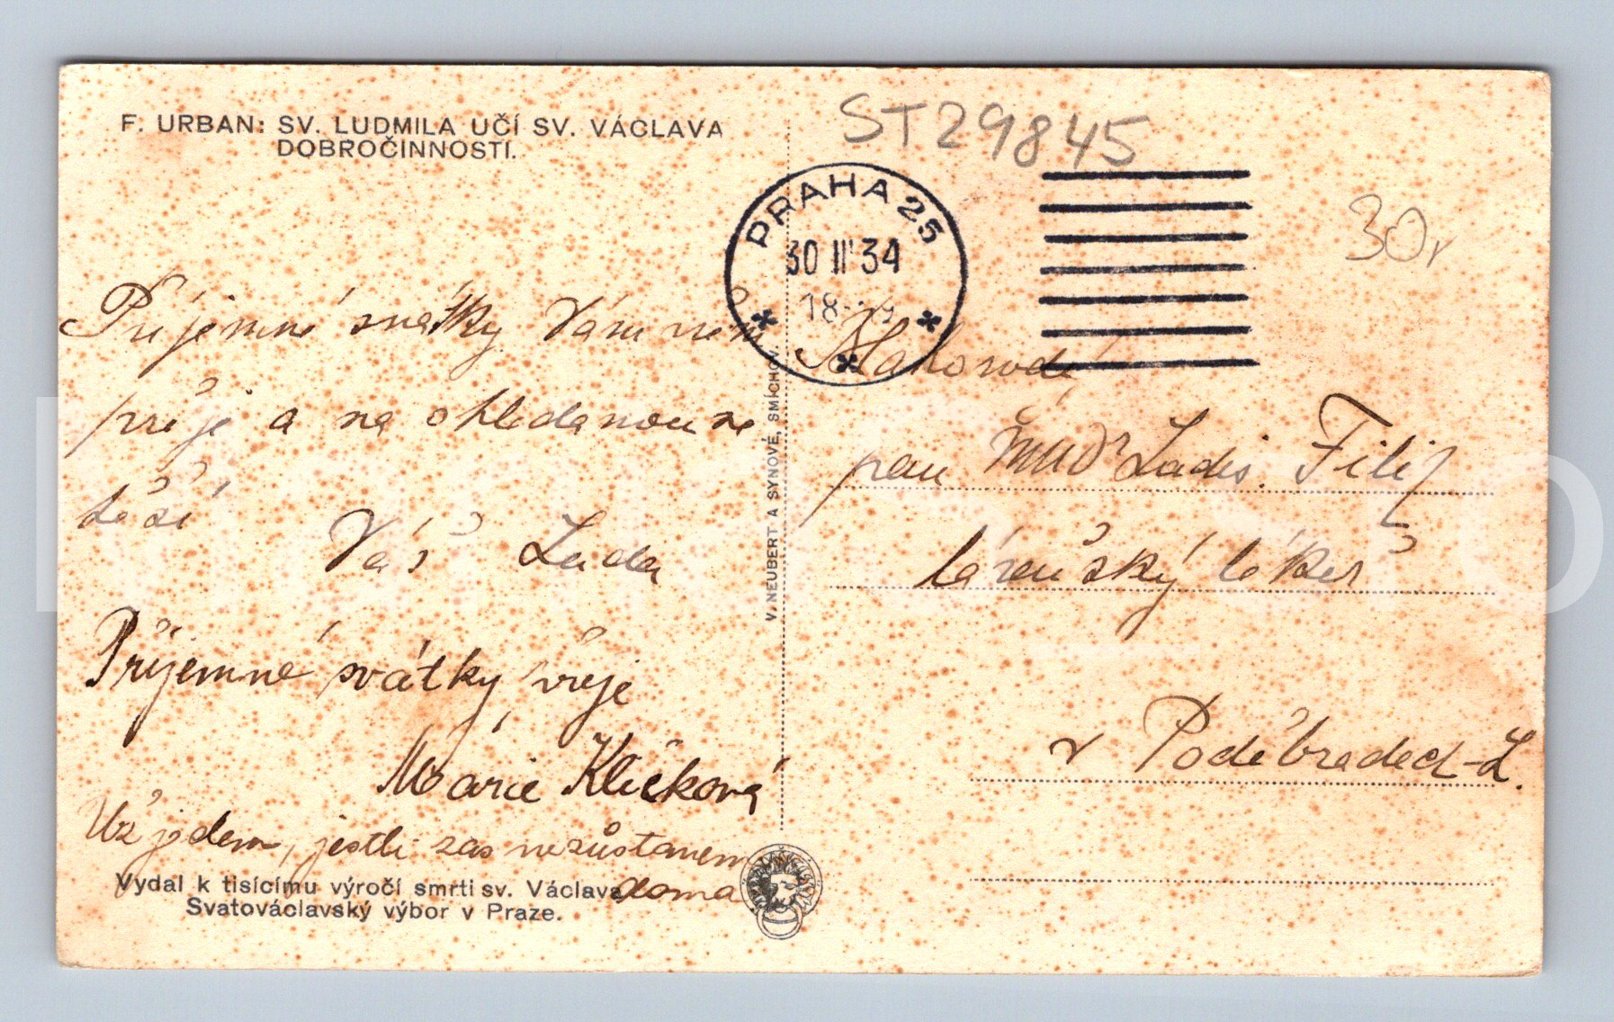 F. URBAN: SV. LUDMILA UČÍ SV. VÁCLAVA
DOBROČINNOSTI.
ST29845
30,-
PRAHA 25
30 III 34
18
Příjemné svátky Vám všem
přeje a na shledanou se
těší
Váš Lada
Příjemné svátky přeje
Marie Klíčková
Už jdem, jestli zas nezůstanem
doma
Vydal k tisícímu výročí smrti sv. Václava
Svatováclavský výbor v Praze.
V. NEUBERT A SYNOVÉ, SMÍCHOV.
Blahorodí
pan MUDr Ladis. Filip
lázeňský lékař
v Poděbradech-L.